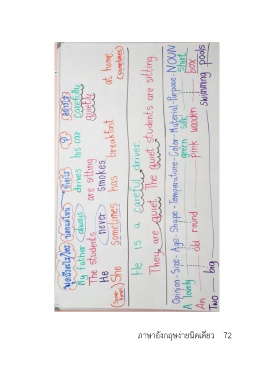 My father always drives his car carefully
The students are sitting quietly
He never smokes
She sometimes has breakfast at home
(sometimes)
He is a careful driver.
They are quiet The quiet students are sitting.
Opinion-Size-Age-Shape-Temperature-Color-Material-Purpose-NOUN
A lovely green silk shirt
An old round pink wooden box
Two big swimming pools
ภาษาอังกฤษง่ายนิดเดียว 72